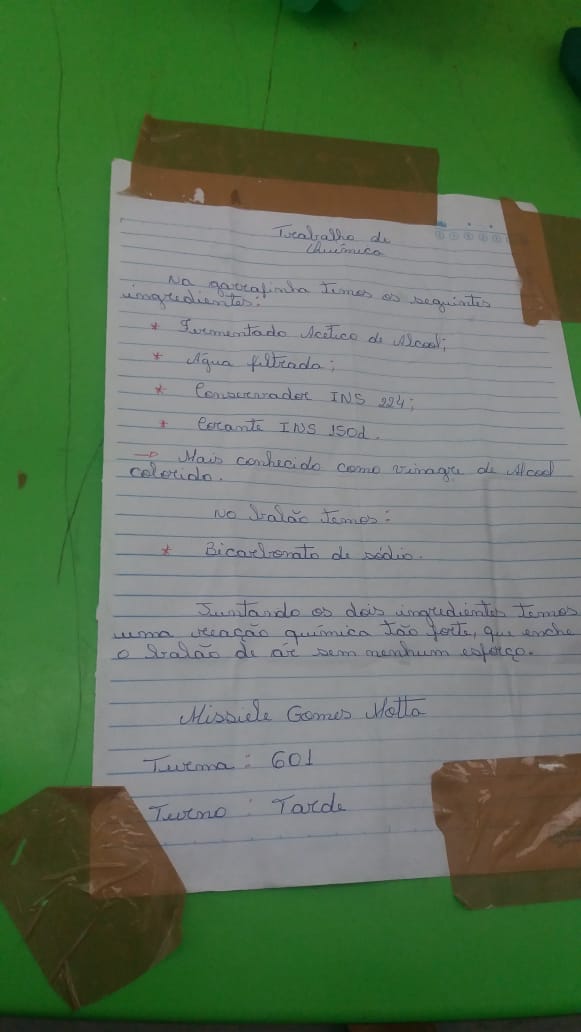 Trabalho de
Química
Na garrafinha temos os seguintes
ingredientes:
* Fermentado Acético de Álcool;
* Água filtrada;
* Conservador INS 224;
* Corante INS 150d.
→ Mais conhecido como vinagre de Álcool
colorido.
No balão temos:
* Bicarbonato de sódio.
Juntando os dois ingredientes temos
uma reação química tão forte, que enche
o balão de ar sem nenhum esforço.
Missiele Gomes Motta
Turma: 601
Turno: Tarde